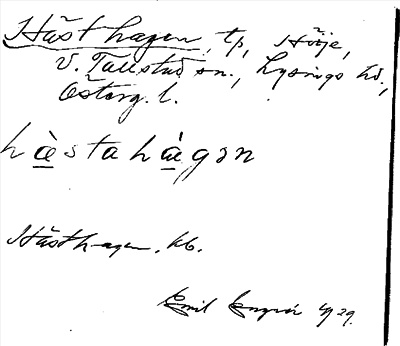 Hästhagen, tp, Höje,
V. Tollstad sn., Lysings hd.,
Österg. l.
hæstahagən
Hästhagen. kb.
Emil 1929.